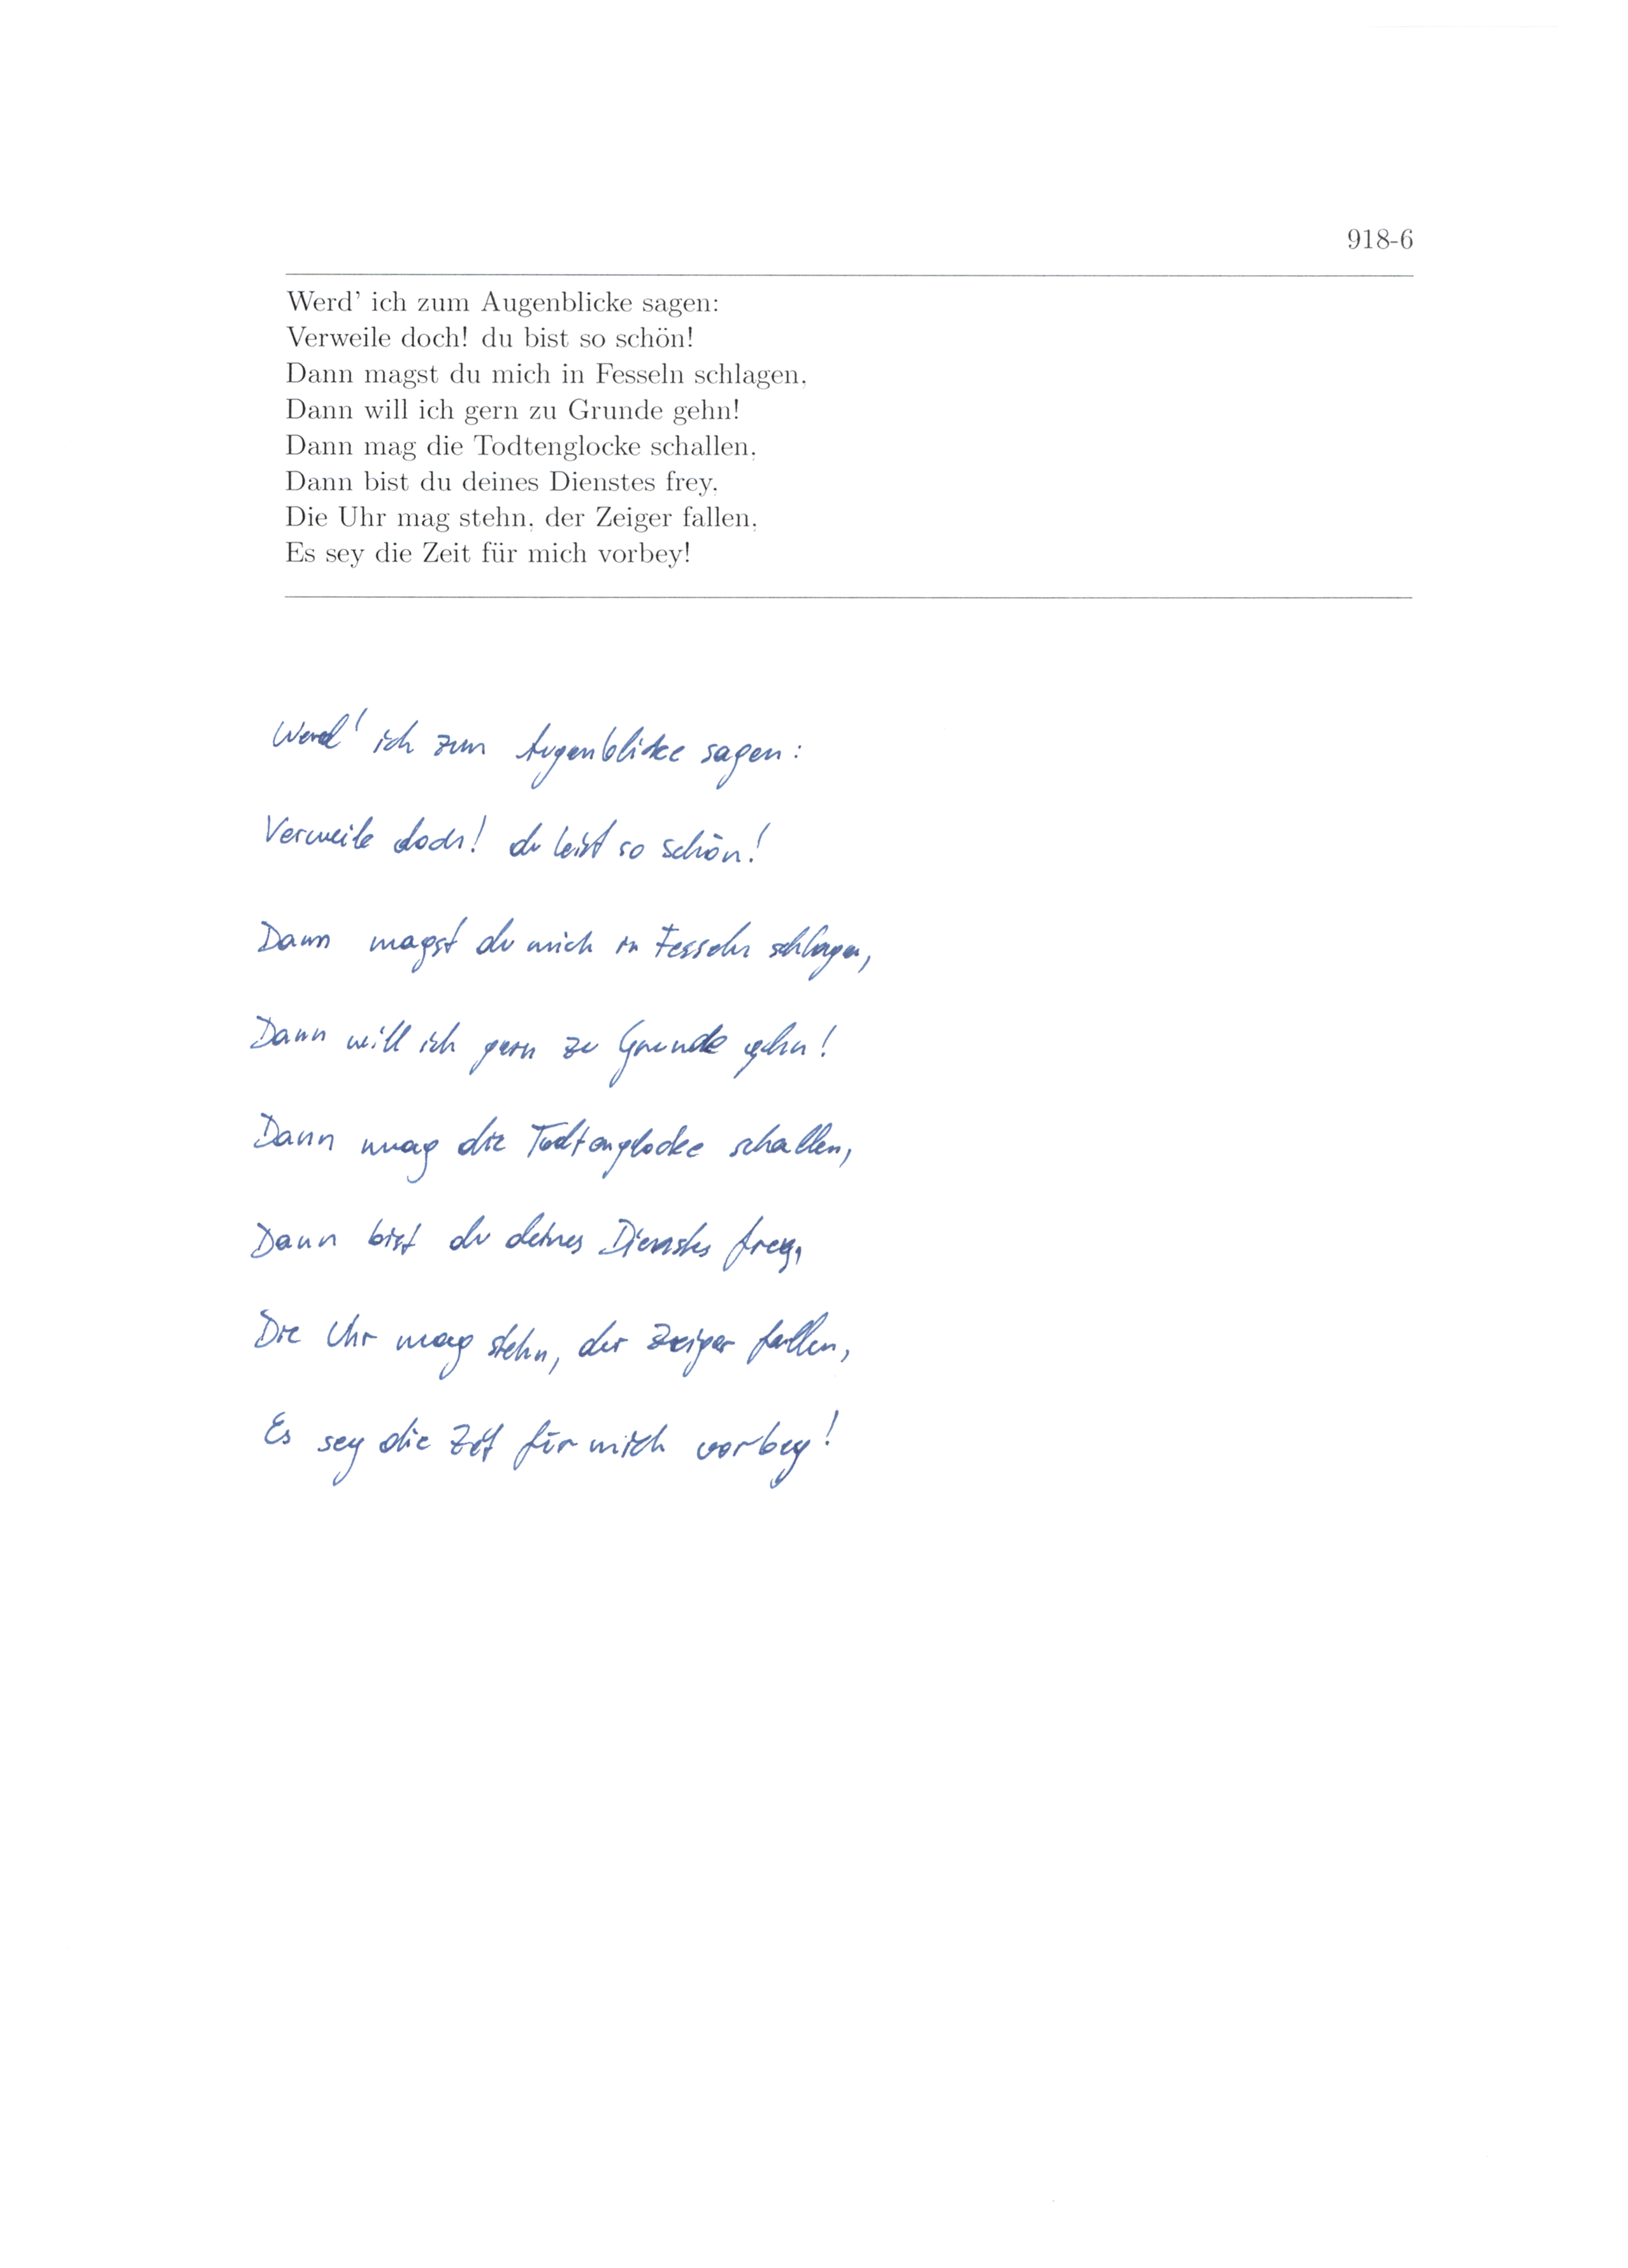 918-6
Werd' ich zum Augenblicke sagen:
Verweile doch! du bist so schön!
Dann magst du mich in Fesseln schlagen,
Dann will ich gern zu Grunde gehn!
Dann mag die Todtenglocke schallen,
Dann bist du deines Dienstes frey,
Die Uhr mag stehn, der Zeiger fallen,
Es sey die Zeit für mich vorbey!
Werd' ich zum Augenblicke sagen:
Verweile doch! du bist so schön!
Dann magst du mich in Fesseln schlagen,
Dann will ich gern zu Grunde gehn!
Dann mag die Todtenglocke schallen,
Dann bist du deines Dienstes frey,
Die Uhr mag stehn, der Zeiger fallen,
Es sey die Zeit für mich vorbey!